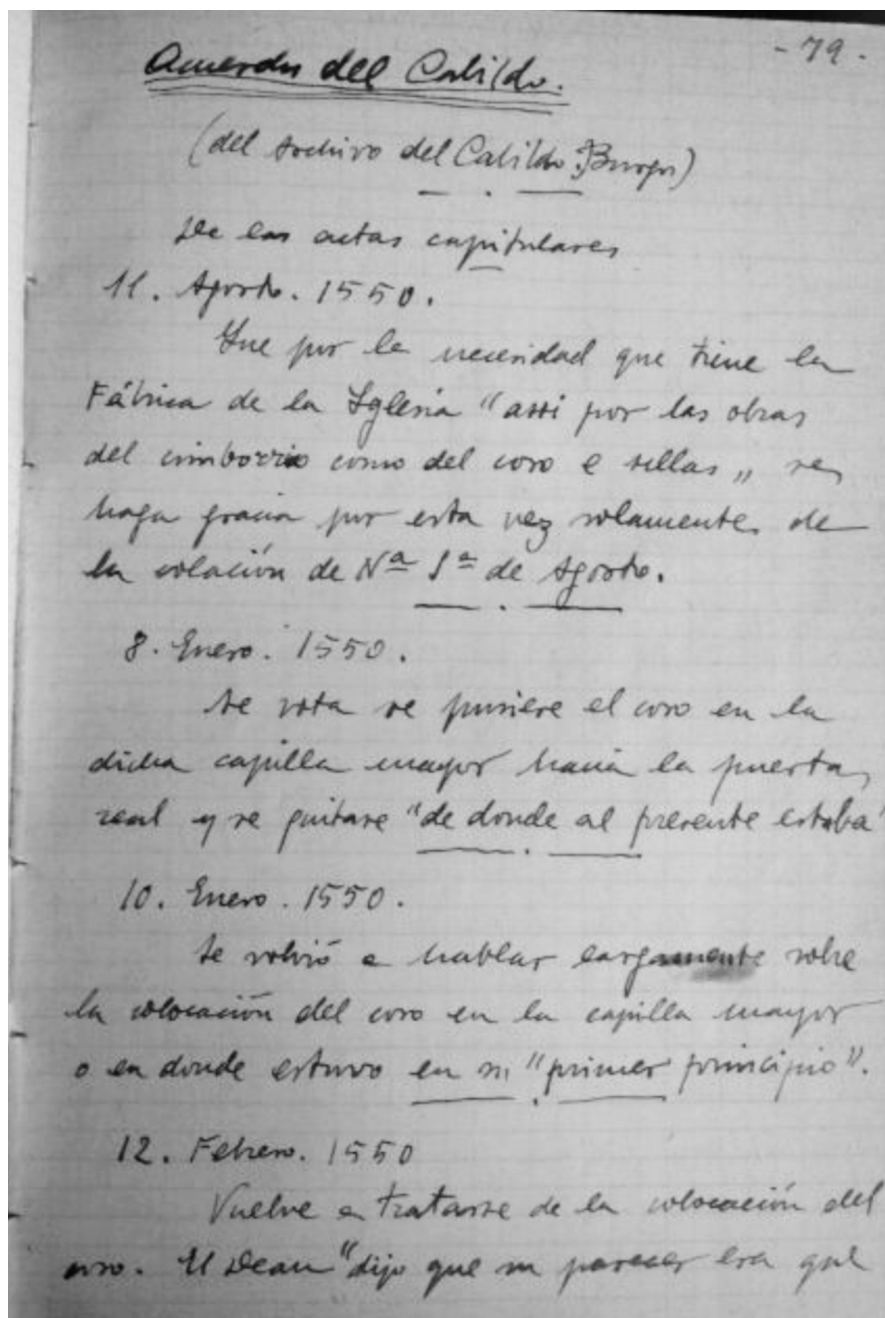 - 79 -
Acuerdos del Cabildo.
(del Archivo del Cabildo. Burgos)
De las actas capitulares
11. Agosto. 1550.
Que por la necesidad que tiene la
Fábrica de la Iglesia "assi por las obras
del cimborrio como del coro e sillas" se
haga gracia por esta vez solamente de
la colación de Nª Sª de Agosto.
8. Enero. 1550.
Se vota se pusiere el coro en la
dicha capilla mayor hacia la puerta
real y se quitare "de donde al presente estaba"
10. Enero. 1550.
Se volvió a hablar largamente sobre
la colocación del coro en la capilla mayor
o en donde estuvo en su "primer principio".
12. Febrero. 1550
Vuelve a tratarse de la colocación del
coro. El Dean "dijo que su parecer era que